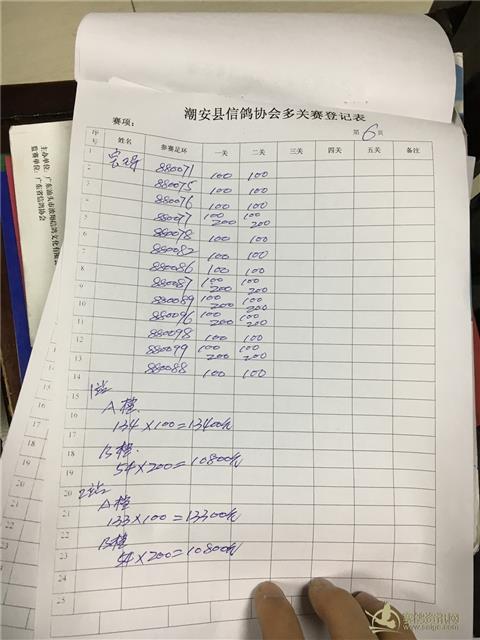 潮安县信鸽协会多关赛登记表
赛项：
第6页
序号 姓名 参赛足环 一关 二关 三关 四关 五关 备注
1 880071 100 100
2 880075 100 100
3 880076 100 100
4 880077 100 200 100 200
5 880078 100 100
6 880082 100 100
7 880086 100 100
8 880087 100 200 100 200
9 880089 100 200 100 200
10 880096 100 200 100 200
11 880098 100 100
12 880099 100 200 100 200
13 880088 100 100
14
15 1站
A档
16 134×100=13400元
17
18 B档
19 54×200=10800元
20 2站
A档
21 133×100=13300元
22 B档
23 54×200=10800元
24
25
主办单位：广东汕头市
监赛单位：广东省信鸽协会
赛鸽资讯网